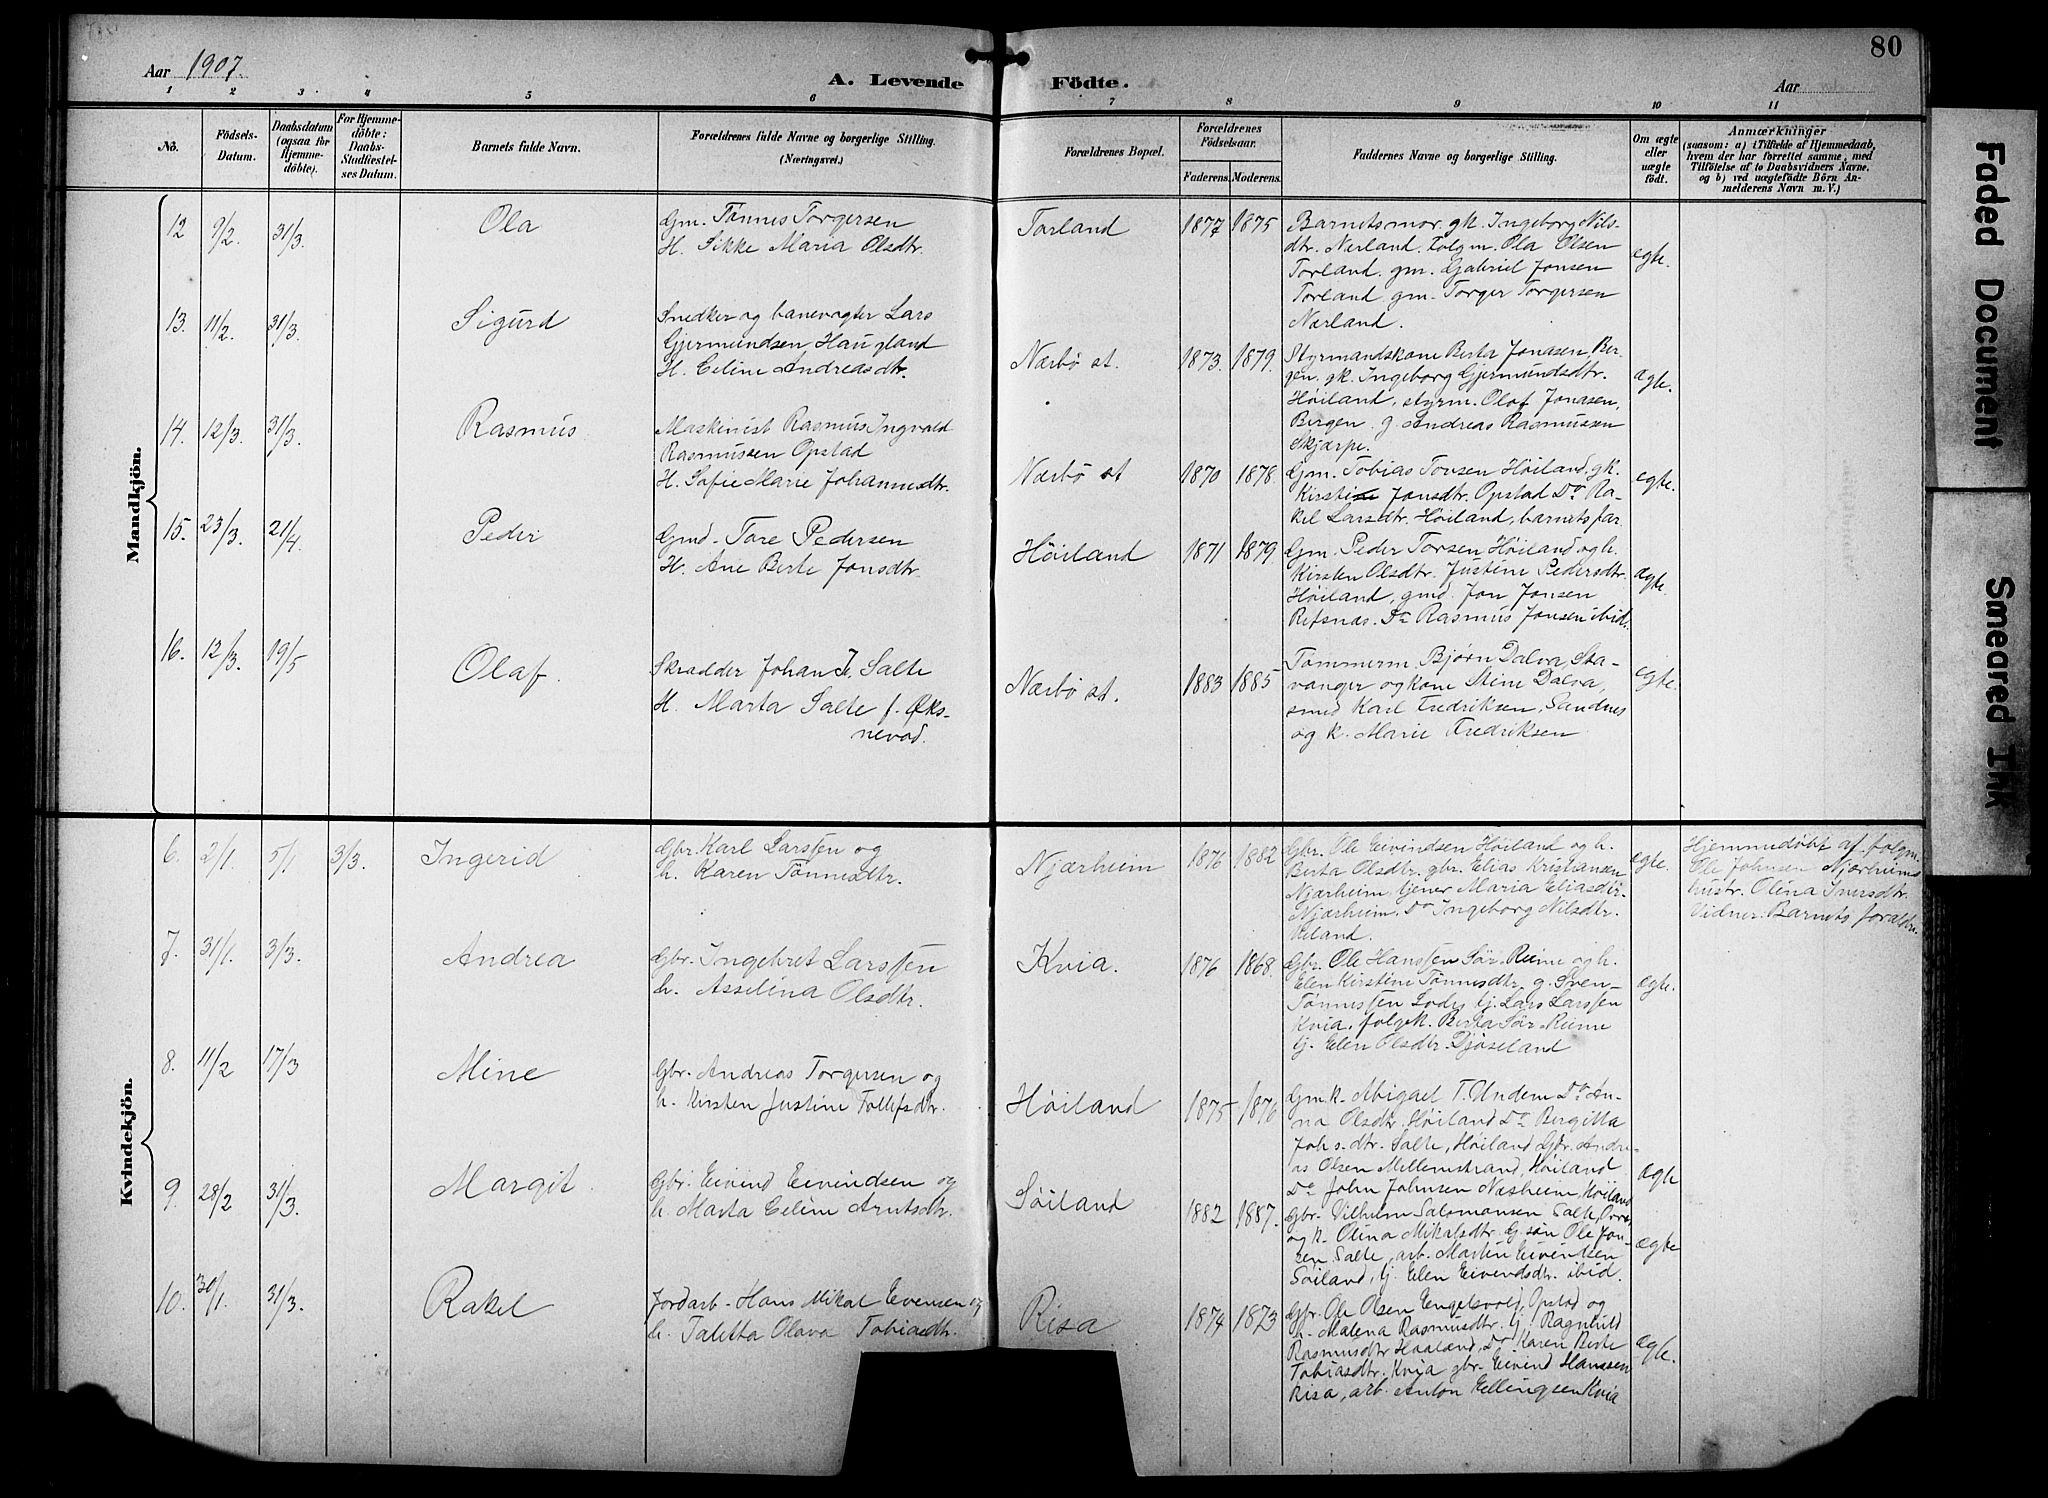 80
Aar 1907.
A. Levende Födte.
Aar
1 2 3 4 5 6 7 8 9 10 11
No.
Födsels-
Datum.
Daabsdatum
(ogsaa for
Hjemme-
döbte).
For Hjemme-
döbte:
Daabs-
Stadfæstel-
ses Datum.
Barnets fulde Navn.
Forældrenes fulde Navne og borgerlige Stilling.
(Næringsvei.)
Forældrenes Bopæl.
Forældrenes
Födselsaar.
Faderens. Moderens.
Faddernes Navne og borgerlige Stilling.
Om ægte
eller
uægte
födt.
Anmærkninger
(saasom: a) i Tilfælde af Hjemmedaab,
hvem der har forrettet samme, med
Tilföielse af to Daabsvidners Navne,
og b) ved uægtefödte Börn An-
melderens Navn m. V.)
Mandkjön.
12 9/2. 31/3. Ola
Gm. Tønnes Torgersen
H. Sikke Maria Olsdtr.
Torland 1877 1875
Barnetsmor. gk. Ingeborg Nils-
dtr. Nærland. Folgm. Ola Olsen
Torland. gm. Gabriel Jonsen
Torland, gm. Torger Torgersen
Nærland.
ægte.
13. 11/2. 31/3. Sigurd
Snedker og banevogter Lars
Gjermundsen Haugland
H. Celine Andreasdtr.
Nærbø st. 1873. 1879.
Styrmandskone Berta Jonasen, Ber-
gen. gk. Ingeborg Gjermundsdtr.
Høiland, styrm. Olaf Jonasen,
Bergen. g. Andreas Rasmussen
Skjærpe.
ægte.
14. 12/3. 31/3. Rasmus
Maskinist Rasmus Ingvald
Rasmussen Opstad
H. Sofie Marie Johannesdtr.
Nærbø st 1870 1878.
Gm. Tobias Torsen Høiland, gk.
Jonsdtr. Opstad Do Ra-
kel Larsdtr. Høiland, barnets far.
ægte.
15. 23/3. 21/4. Peder
Gmd. Tore Pedersen
H. Ane Berte Jonsdtr.
Høiland 1871 1879
Gm. Peder Torsen Høiland og h.
Kirsten Olsdtr. Justine Pedersdtr.
Høiland, gmd. Jon Jonsen
Refsnæs. Do Rasmus Jonsen ibid.
ægte.
16. 12/3. 19/5 Olaf.
Skrædder Johan Salte
H. Marta Salte f. Øks-
nevad.
Nærbø st. 1883 1885
Tømmerm. Bjørn Dalva, Sta-
vanger og kone Stine Dalva,
smed Karl Fredriksen, Sandnes
og k. Marie Fredriksen
ægte.
Kvindekjön.
6. 2/1. 5/1 3/3. Ingerid
Gbr. Karl Larssen og
h. Karen Tønnesdtr.
Njærheim 1876 1882
Gbr. Ole Eivindsen Høiland og h.
Berta Olsdtr. gbr. Elias Kristiansen
Njærheim, tjener Maria Eliasdtr.
Njærheim. Do Ingeborg Nilsdtr.
ægte.
Hjemmedøbt af folgm.
Ole Johnsen Njærheims
hustr. Olina Iversdtr.
Vidner. Barnets forældre.
7. 31/1. 3/3. Andrea
Gbr. Ingebret Larssen
h. Asselina Olsdtr.
Kvia. 1876 1868.
Gbr. Ole Hanssen Sør-Reime og h.
Elen Kirstine Tønnesdtr. g. Sven
Tønnessen tj. Lars Larssen
Kvia. folgek. Berta Sør-Reime
tj. Elen Olsdtr. Djøseland
ægte.
8. 11/2 17/3 Mine
Gbr. Andreas Torgersen og
h. Kirsten Justine Tollefsdtr.
Høiland 1875 1876
Gmk. Abigael T. Undem Do An-
na Olsdtr. Høiland Do Bergitta
Joh s. dtr. Salte, Høiland Gbr. Andre-
as Olsen Mellemstrand, Høiland
Do John Johnsen Næsheim, Høiland
ægte
9. 28/2 31/3. Margit.
Gbr. Eivind Eivindsen og
h. Marta Celine Arntsdtr.
Søiland 1882 1887.
Gbr. Vilhelm Salomonsen Salte, Orre,
og k. Olina Mikalsdtr. G. søn Ole Jon-
sen Salte, arb. Martin Eivindsen
Søiland, tj. Elen Eivendsdtr. ibid.
ægte
10. 30/1. 31/3. Rakel
Jordarb. Hans Mikal Evensen og
h. Taletta Olava Tobiasdtr.
Risa 1874 1873
Gbr. Ole Olsen Engelsvold, Opstad og
h. Malena Rasmusdtr. tj. Ragnhild
Rasmusdtr Haaland, Do Karen Berte
Tobiasdtr. Kvia gbr. Eivind Hanssen
Risa, arb. Anton Ellingsen Kvia
ægte.
Faded Document
Smeared Ink